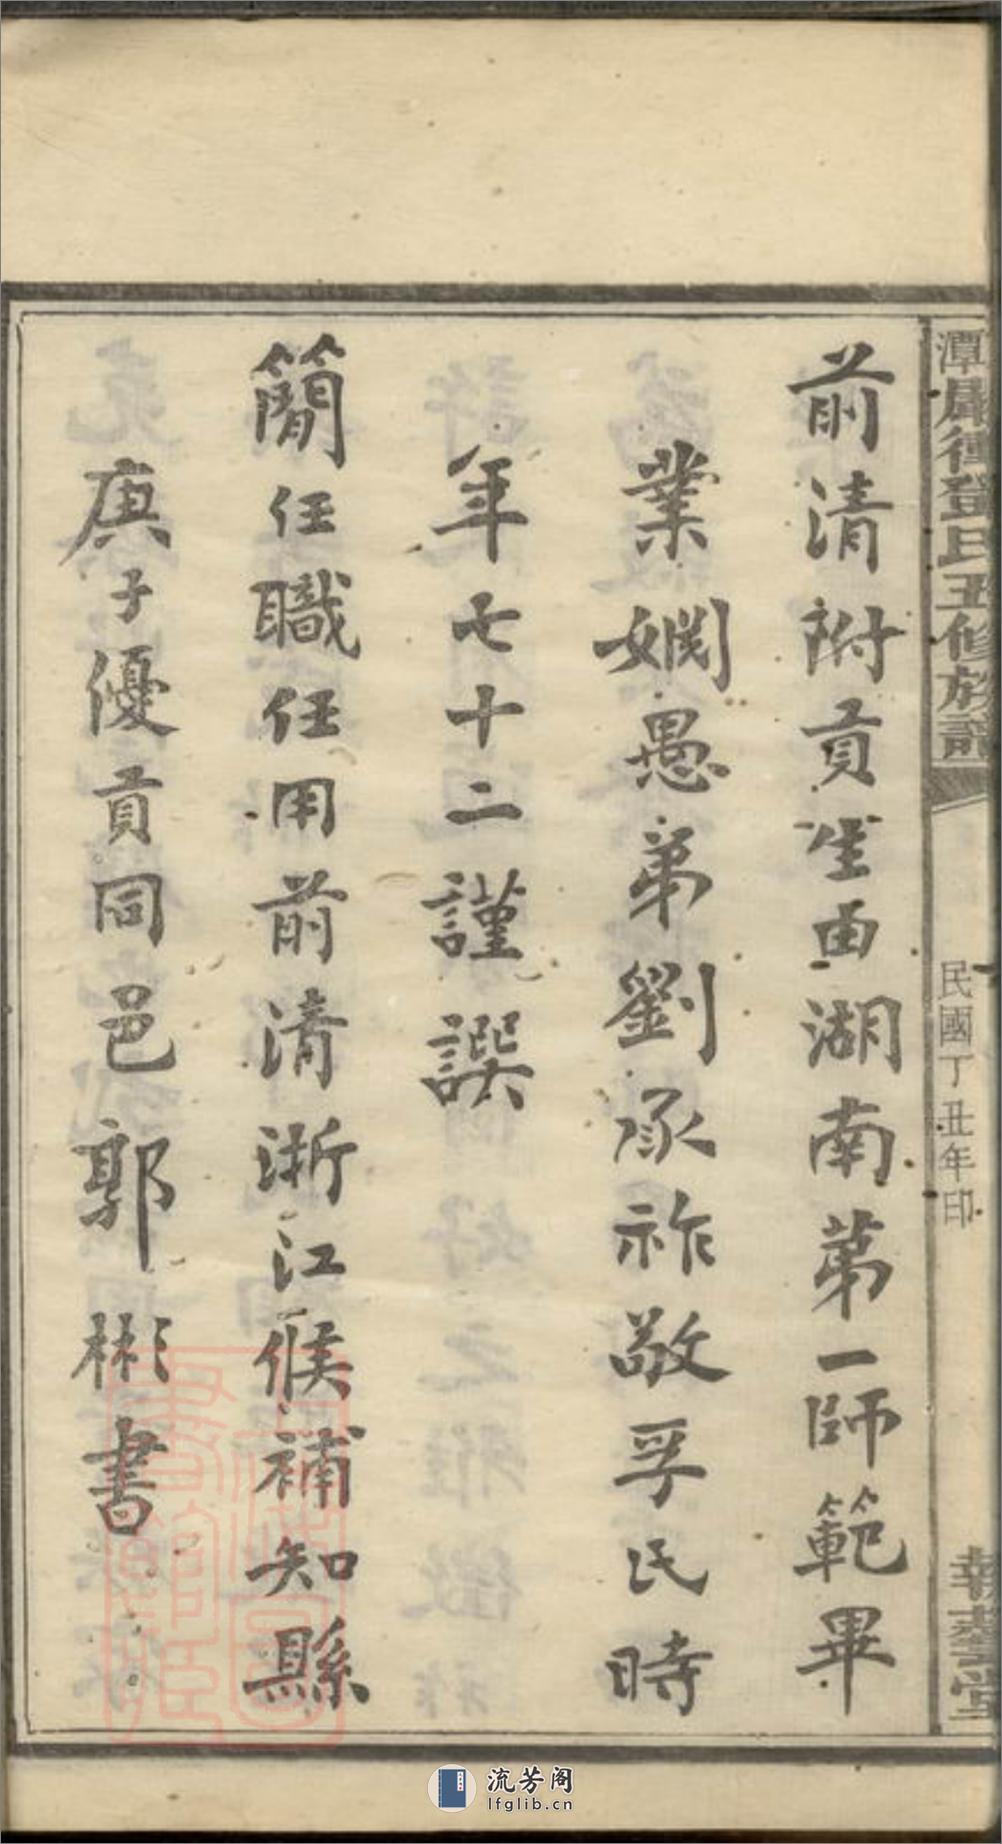 前清附貢生由湖南第一師範畢
業姻愚弟劉承祚敬孚氏時
年七十二謹譔
簡任職任用前清浙江候補知縣
庚子優貢同邑郭彬書
民國丁丑年印
流芳阁
lfglib.cn